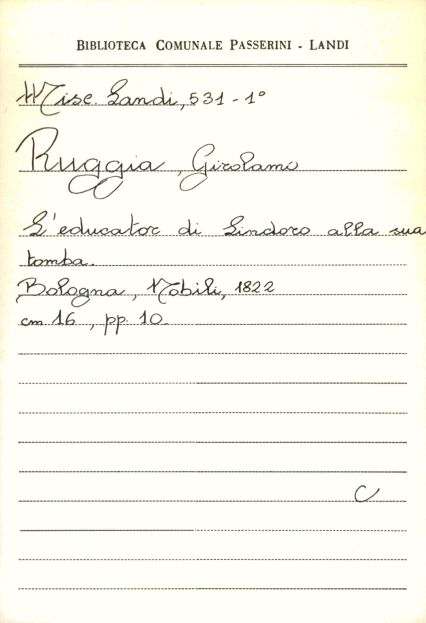 BIBLIOTECA COMUNALE PASSERINI - LANDI
Misc. Landi, 531 - 1°
Ruggia, Girolamo
L'educator di Lindoro alla sua
tomba.
Bologna, Nobili, 1822
cm 16, pp. 10.
C